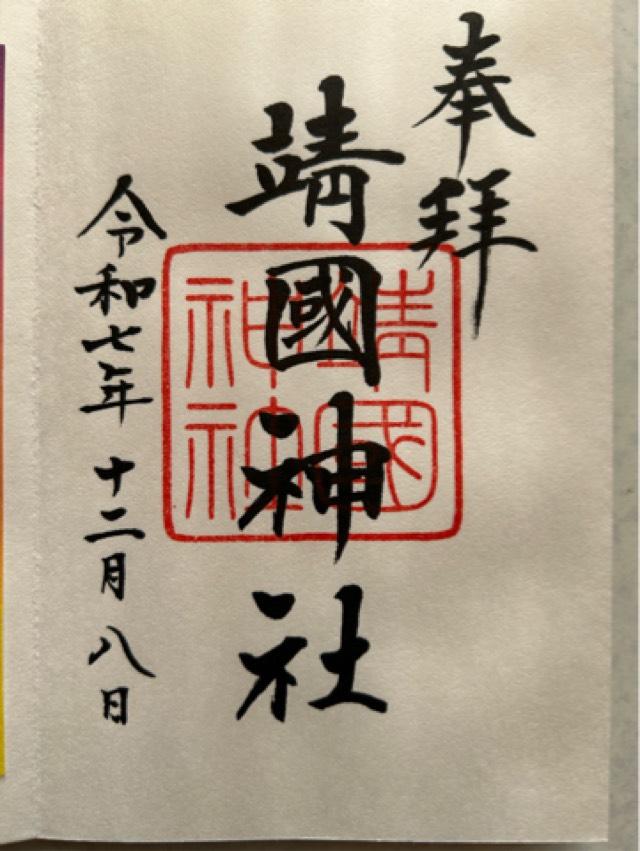 奉拝
靖國神社
靖國
神社
令和七年十二月八日